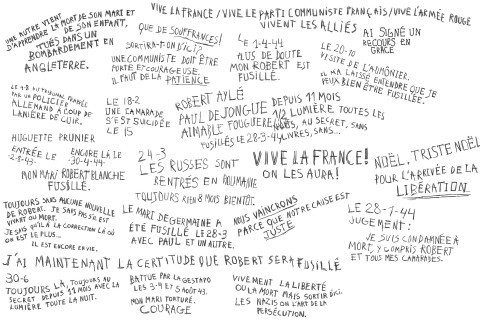 VIVE LA FRANCE / VIVE LE PARTI COMMUNISTE FRANÇAIS / VIVE L'ARMÉE ROUGE
VIVENT LES ALLIÉS
UNE AUTRE VIENT
D'APPRENDRE LA MORT DE SON MARI ET
DE SON ENFANT,
TUÉS DANS UN
BOMBARDEMENT EN
ANGLETERRE.
QUE DE SOUFFRANCES!
SORTIRA-T-ON D'ICI?
UNE COMMUNISTE DOIT ÊTRE
FORTE ET COURAGEUSE.
IL FAUT DE LA PATIENCE
LE 1-4-44
PLUS DE DOUTE
MON ROBERT EST
FUSILLÉ.
AI SIGNÉ UN
RECOURS EN
GRÂCE
LE 20-10
VISITE DE L'AUMÔNIER.
IL M'A LAISSÉ ENTENDRE QUE JE
PEUX BIEN ÊTRE FUSILLÉE.
PAR UN POLICIER
ALLEMAND À COUP DE
LANIÈRE DE CUIR.
LE 18-2
UNE CAMARADE
S'EST SUICIDÉE
LE 15
ROBERT AYLÉ
PAUL DEJONGUE
AIMABLE FOUGUEREUSE
FUSILLÉS LE 28-3-44
DEPUIS 11 MOIS
1/2 LUMIÈRE TOUTES LES
NUITS, AU SECRET, SANS
LIVRES, SANS...
HUGUETTE PRUNIER
ENTRÉE LE
2-8-43
ENCORE LÀ LE
30-4-44
MON MARI ROBERT BLANCHE
FUSILLÉ.
24-3
LES RUSSES SONT
RENTRÉS EN ROUMANIE
TOUJOURS RIEN 8 MOIS BIENTÔT.
VIVE LA FRANCE!
ON LES AURA!
NOËL, TRISTE NOËL
POUR L'ARRIVÉE DE LA
LIBÉRATION
TOUJOURS SANS AUCUNE NOUVELLE
DE ROBERT. JE SAIS PAS S'IL EST
VIVANT OU MORT.
JE SAIS QU'IL A LA CORRECTION LÀ OÙ
ON EST LE PLUS...
IL EST ENCORE EN VIE.
LE MARI DE GERMAINE A
ÉTÉ FUSILLÉ LE 28-3
AVEC PAUL ET UN AUTRE.
NOUS VAINCRONS
PARCE QUE NOTRE CAUSE EST
JUSTE
LE 28-1-44
JUGEMENT:
JE SUIS CONDAMNÉE À
MORT, Y COMPRIS ROBERT
ET TOUS MES CAMARADES.
J'AI MAINTENANT LA CERTITUDE QUE ROBERT SERA FUSILLÉ
30-6
TOUJOURS LÀ, TOUJOURS AU
SECRET DEPUIS 11 MOIS AVEC LA
LUMIÈRE TOUTE LA NUIT.
BATTUE PAR LA GESTAPO
LES 3-4 ET 5 AOÛT 43.
MON MARI TORTURÉ.
COURAGE
VIVEMENT LA LIBERTÉ
OU LA MORT MAIS SORTIR D'ICI.
LES NAZIS ON L'ART DE LA
PERSÉCUTION.